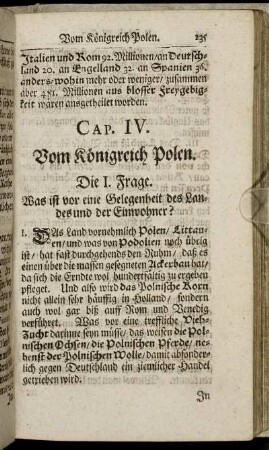 Vom Königreich Polen. 235
Italien und Rom 92. Millionen/ an Deutsch-
land 20. an Engelland 32. an Spanien 36.
anders/ wohin mehr oder weniger/ zusammen
über 481. Millionen aus blosser Freygebig-
keit wären ausgetheilet worden.
CAP. IV.
Vom Königreich Polen.
Die I. Frage.
Was ist vor eine Gelegenheit des Lan-
des und der Einwohner?
1. DAs Land vornehmlich Polen/ Littau-
en/ und was von Podolien noch übrig
ist/ hat fast durchgehends den Ruhm/ daß es
einen über die massen gesegneten Ackerbau hat/
da sich die Erndte wol hundertfältig zu ergeben
pfleget. Und also wird das Polnische Korn
nicht allein sehr häuffig in Holland/ sondern
auch wol gar biß auff Rom und Venedig
verführet. Was vor eine treffliche Vieh-
Zucht darinne seyn müsse/ das weisen die Pol-
nischen Ochsen/ die Polnischen Pferde/ ne-
benst der Polnischen Wolle/ damit absonder-
lich gegen Deutschland ein ziemlicher Handel
getrieben wird.
In